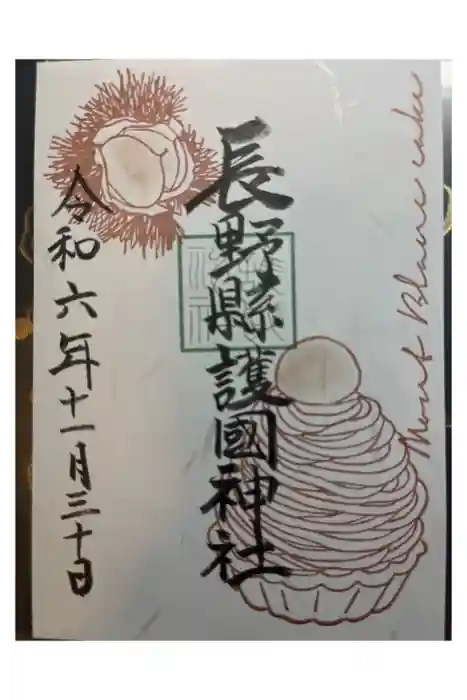 Mont Blanc cake
長野縣護國神社
令和六年十一月三十日